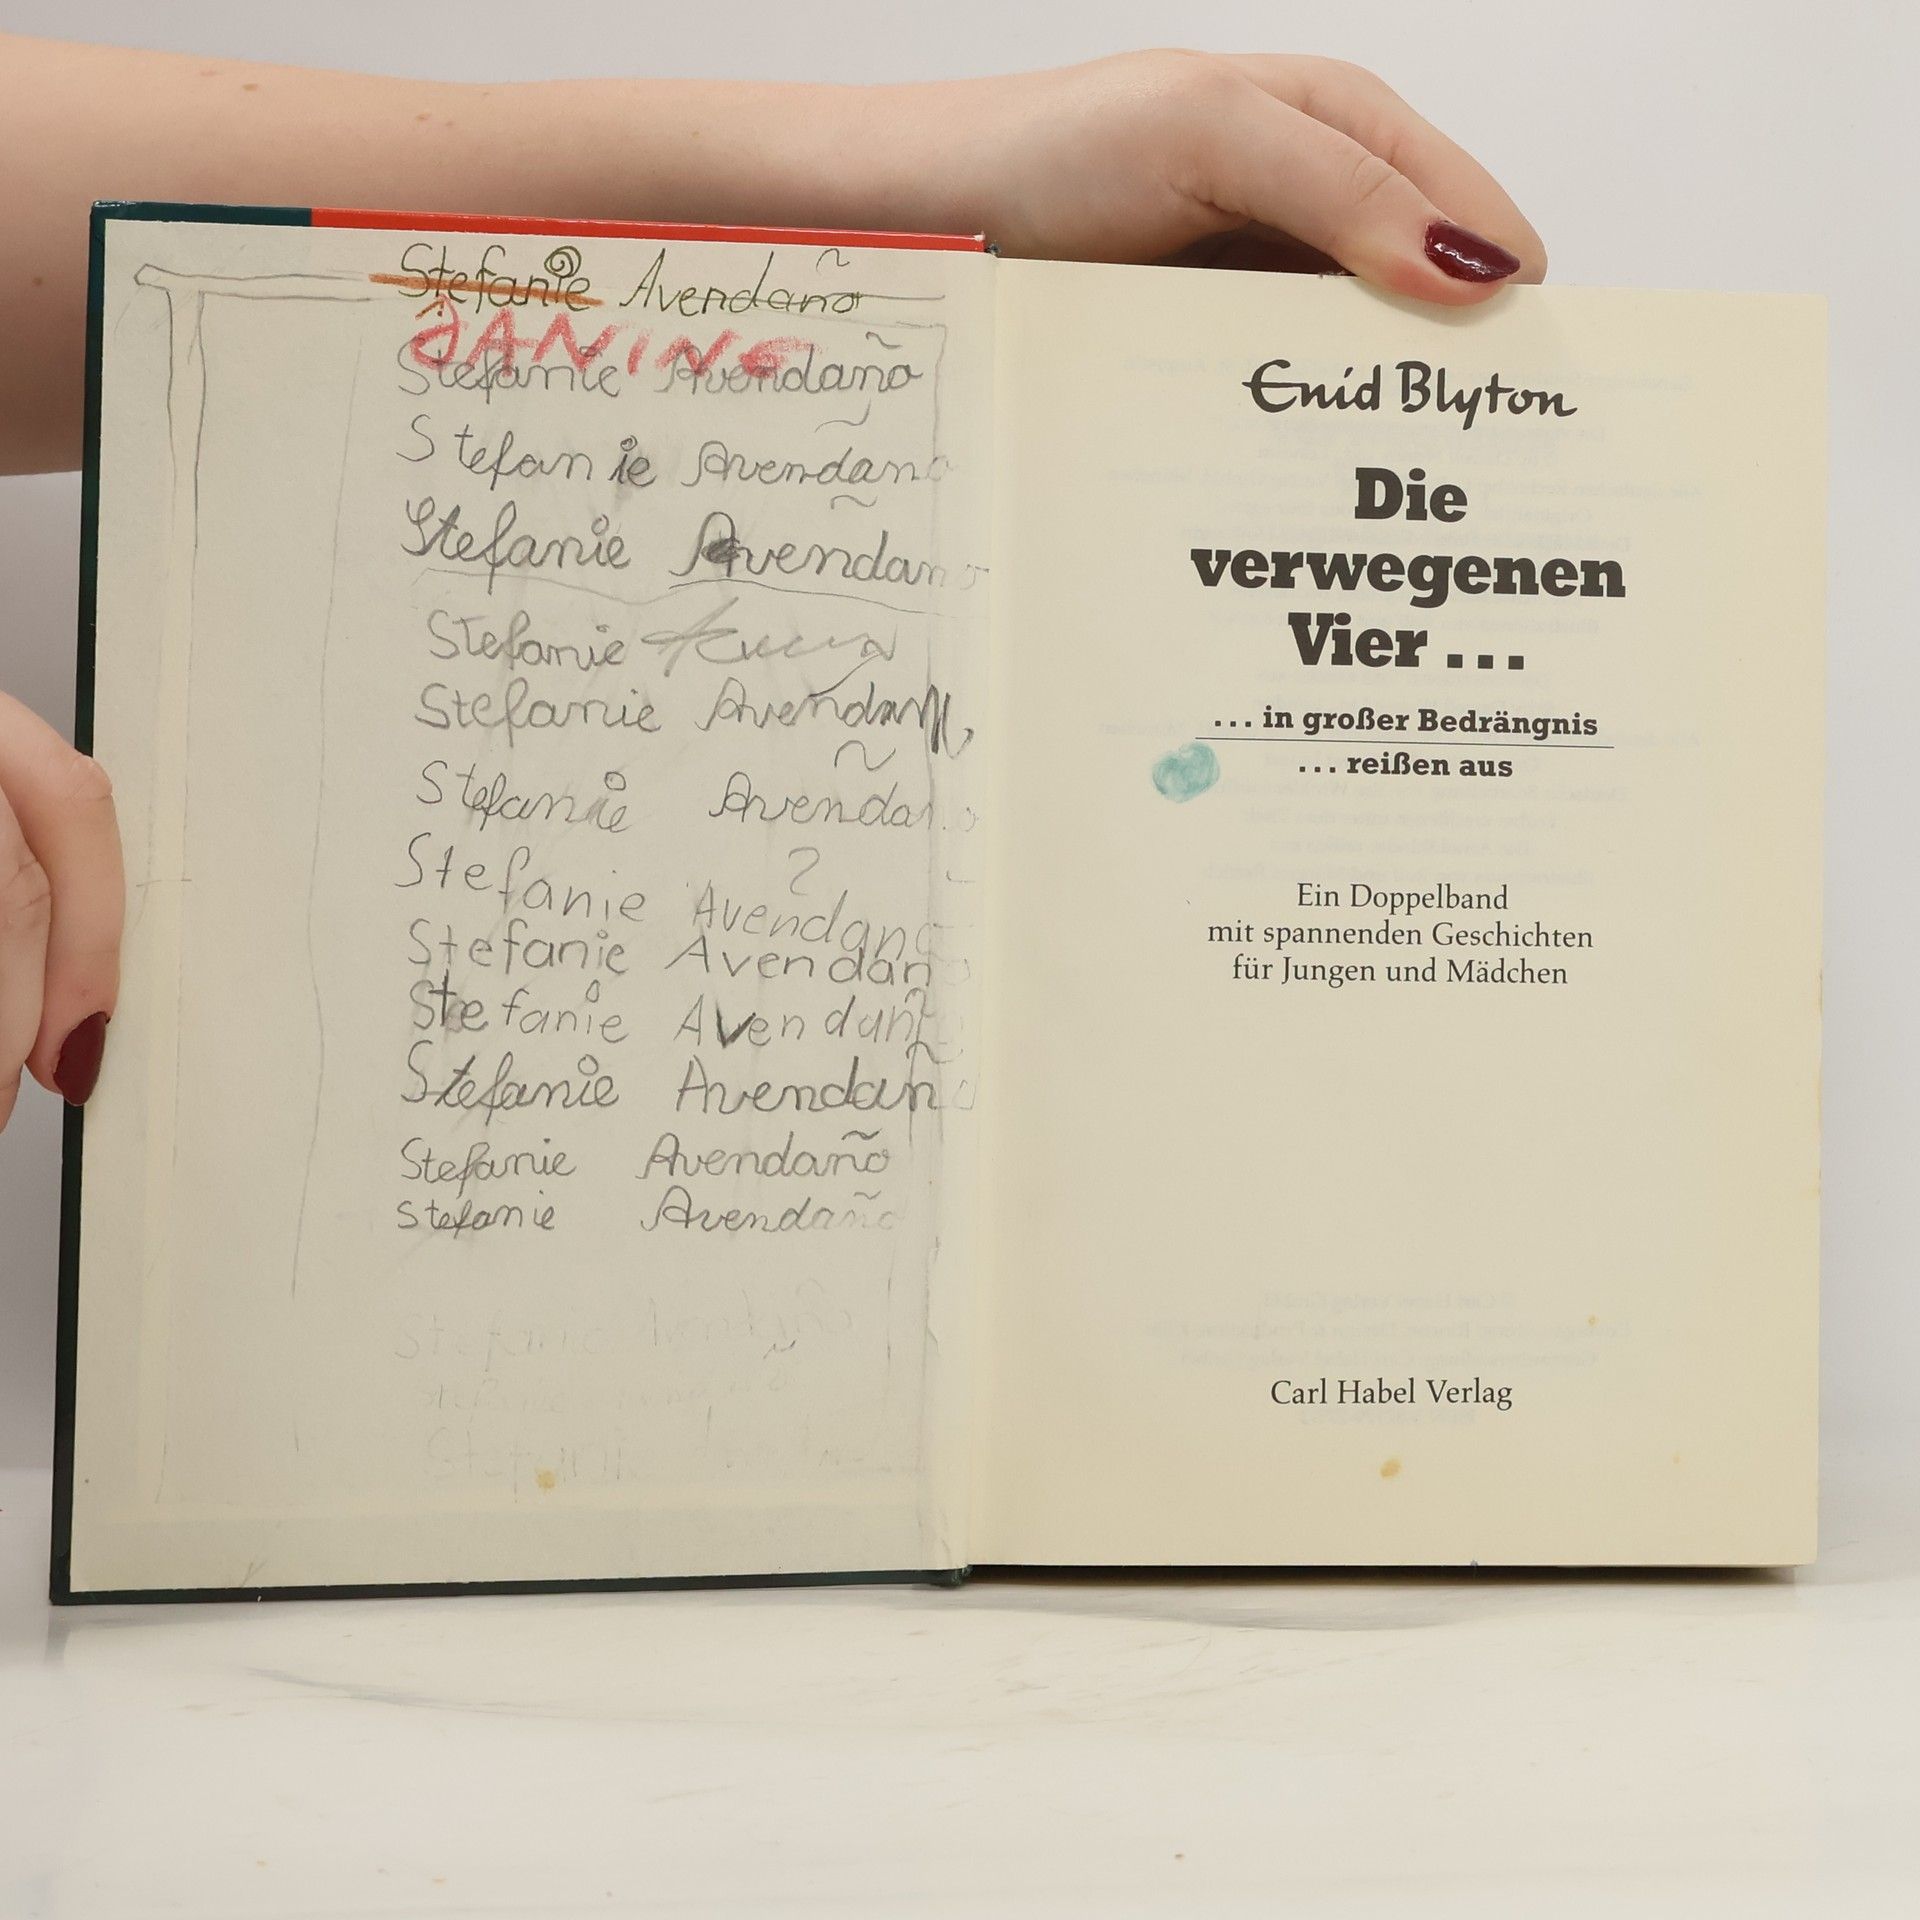 Stefanie Avendaño
JANINE
Stefanie Avendaño
Stefanie Avendaño
Stefanie Avendaño
Stefanie
Stefanie
Stefanie Avendaño
Stefanie Avendano
Stefanie Avendano
Stefanie Avendaño
Stefanie Avendaño
Stefanie Avendaño
Stefanie Avendaño
Stefanie
Enid Blyton
Die
verwegenen
Vier ...
... in großer Bedrängnis
... reißen aus
Ein Doppelband
mit spannenden Geschichten
für Jungen und Mädchen
Carl Habel Verlag